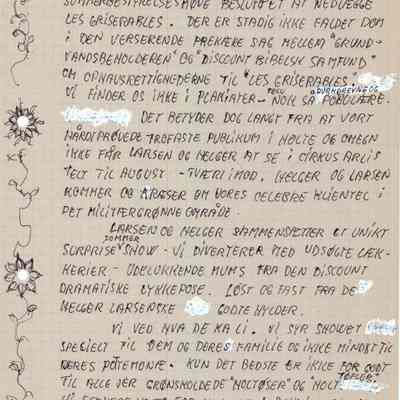 SOMMERBESTYRELSESMØDE BESLUTTET AT NEDLÆGGE
LES GRISERABLES. DER ER STADIG IKKE FALDET DOM
I DEN VERSERENDE PREKÆRE SAG MELLEM "GRUND-
VANDSBEHOLDEREN" OG "DISCOUNT BIBELSK SAMFUND"
OM OPHAVSRETTIGHEDERNE TIL "LES GRISERABLES".
VI FINDER OS IKKE I PLAGIATER - NOK SÅ POPULÆRE.
DET BETYDER DOG LANGT FRA AT VORT
HÅRDTPRØVEDE TROFASTE PUBLIKUM I HOLTE OG OMEGN
IKKE FÅR LARSEN OG HELGER AT SE I CIRKUS ARLIS
TELT TIL AUGUST - TVÆRTIMOD. HELGER OG LARSEN
KOMMER OG KRÆSER OM VORES CELEBRE KLIENTEL I
DET MILITÆRGRØNNE OMRÅDE.
LARSEN OG HELGER SAMMENSPETTER ET UNIKT
SOMMER
SURPRISE SHOW - VI DIVERTERER MED UDSØGTE LÆK-
KERIER - UDELUKKENDE MUMS FRA DEN DISCOUNT
DRAMATISKE LYKKEPOSE. LØST OG FAST FRA DE
HELGER LARSENSKE GODTE HYLDER.
VI VED HVA DE KA LI. VI SYR SHOWET
SPECIELT TIL DEM OG DERES FAMILIE OG IKKE MINDST TIL
DERES POTEMONÆ. KUN DET BEDSTE ER IKKE FOR GODT
TIL ALLE VER GRØNSHOLDEDE "HOLTØSER" OG "HOLT